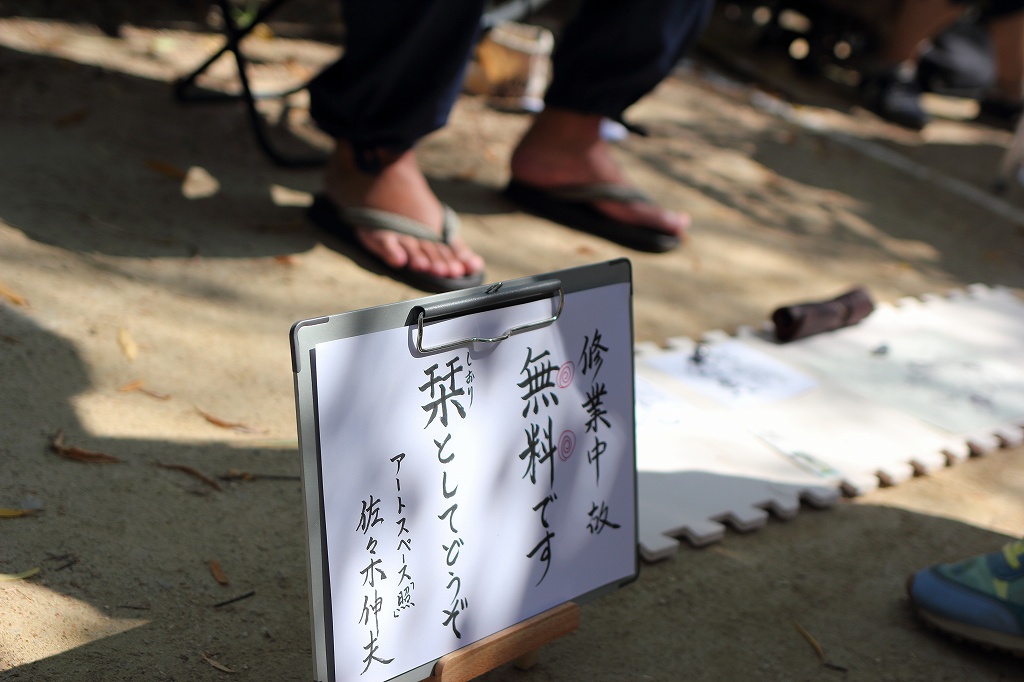 修業中故
無料です
しおり
栞としてどうぞ
アートスペース「照」
佐々木伸夫